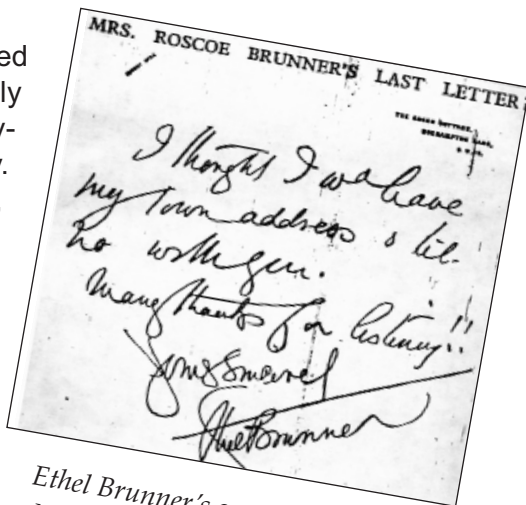 ed
ly
y-
.
MRS. ROSCOE BRUNNER'S LAST LETTER:
ROEHAMPTON LANE,
S.W.15.
I thought I wd have
my Town address & tel.
no with you.
Many thanks for listening!!
Yours sincerely
Ethel Brunner
Ethel Brunner's